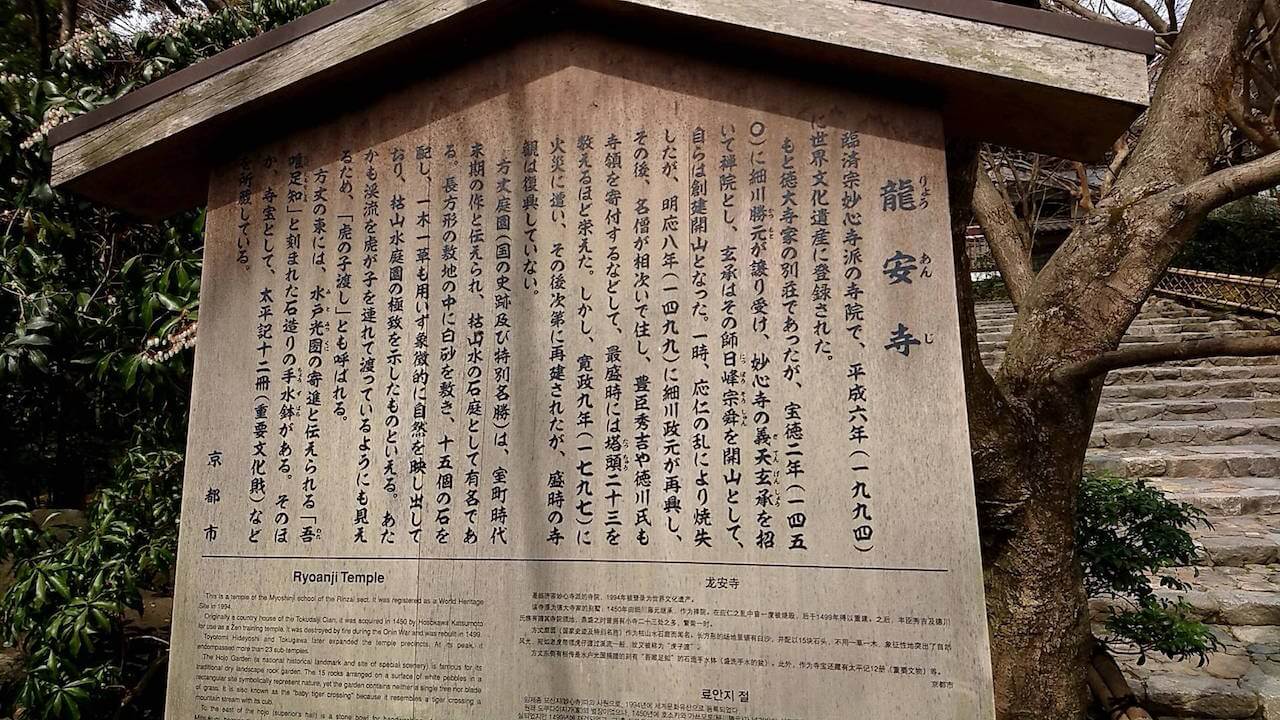 龍安寺
りょうあんじ
臨済宗妙心寺派の寺院で、平成六年(一九九四)
に世界文化遺産に登録された。
もと徳大寺家の別荘であったが、宝徳二年(一四五
〇)に細川勝元が譲り受け、妙心寺の義天玄承を招
いて禅院とし、玄承はその師日峰宗舜を開山として、
自らは創建開山となった。一時、応仁の乱により焼失
したが、明応八年(一四九九)に細川政元が再興し、
その後、名僧が相次いで住し、豊臣秀吉や徳川氏も
寺領を寄付するなどして、最盛時には塔頭二十三を
数えるほど栄えた。しかし、寛政九年(一七九七)に
火災に遭い、その後次第に再建されたが、盛時の寺
観は復興していない。
方丈庭園(国の史跡及び特別名勝)は、室町時代
末期の作と伝えられ、枯山水の石庭として有名であ
る。長方形の敷地の中に白砂を敷き、十五個の石を
配し、一木一草も用いず象徴的に自然を映し出して
おり、枯山水庭園の極致を示したものといえる。あた
かも渓流を虎が子を連れて渡っているようにも見え
るため、「虎の子渡し」とも呼ばれる。
方丈の東には、水戸光圀の寄進と伝えられる「吾
唯足知」と刻まれた石造りの手水鉢がある。そのほ
か、寺宝として、太平記十二冊(重要文化財)など
を所蔵している。
京都市
Ryoanji Temple
This is a temple of the Myoshinji school of the Rinzai sect. It was registered as a World Heritage
Site in 1994.
Originally a country house of the Tokudaiji Clan, it was acquired in 1450 by Hosokawa Katsumoto
for use as a Zen training temple. It was destroyed by fire during the Onin War and was rebuilt in 1499.
Toyotomi Hideyoshi and Tokugawa later expanded the temple precincts. At its peak, it
encompassed more than 23 sub-temples.
The Hojo Garden (a national historical landmark and site of special scenery) is famous for its
traditional dry landscape rock garden. The 15 rocks arranged on a surface of white pebbles in a
rectangular site symbolically represent nature, yet the garden contains neither a single tree nor blade
of grass. It is also known as the "baby tiger crossing" because it resembles a tiger crossing a
mountain stream with its cub.
To the east of the hojo (superior's hall) is a stone bowl for
龙安寺
是临济宗妙心寺派的寺院，1994年被登录为世界文化遗产。
京都市
료안지 절